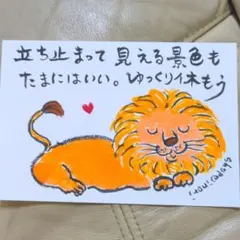 立ち止まって見える景色も
たまにはいい。ゆっくり休もう